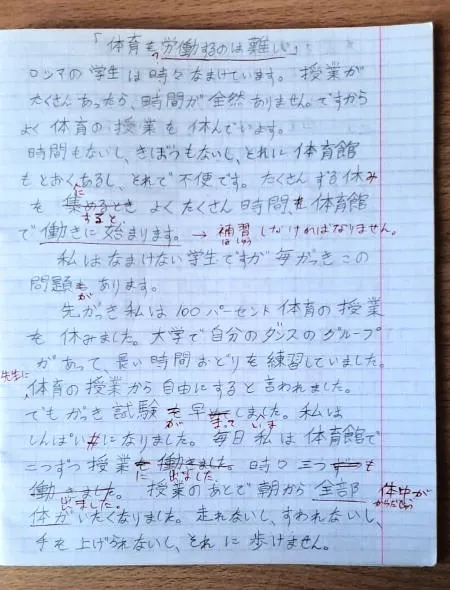 「体育も労働するのは難しい」
ロシアの学生は時々なまけています。授業が
たくさんあったら、時間が全然ありません。ですから
よく体育の授業を休んでいます。
時間もないし、きぼうもないし、それに体育館
もとおくあるし、それで不便です。たくさんする休み
に
を集めるとき よくたくさん時間も体育館
すると
で働きに始まります。→補習しなければなりません。
ほしゅう
私はなまけない学生ですが毎がっきこの
問題も あります。
が
先がっき私は100パーセント体育の授業
を休みました。大学で自分のダンスのグループ
があって長い時間おどりを練習していました。
先生に
体育の授業から自由にすると言われました。
でもがっき試験を早 しました。私は
が まって いま
しんぱい になりました。毎日私は体育館で
二つずつ授業を働きました。時々三つずつも
に出ました
働きました。授業のあとで朝から全部 体中が
出ました。 からだじゅう
体がいたくなりました。走れないし、すわれないし、
手を上げられないし、それに歩けません。